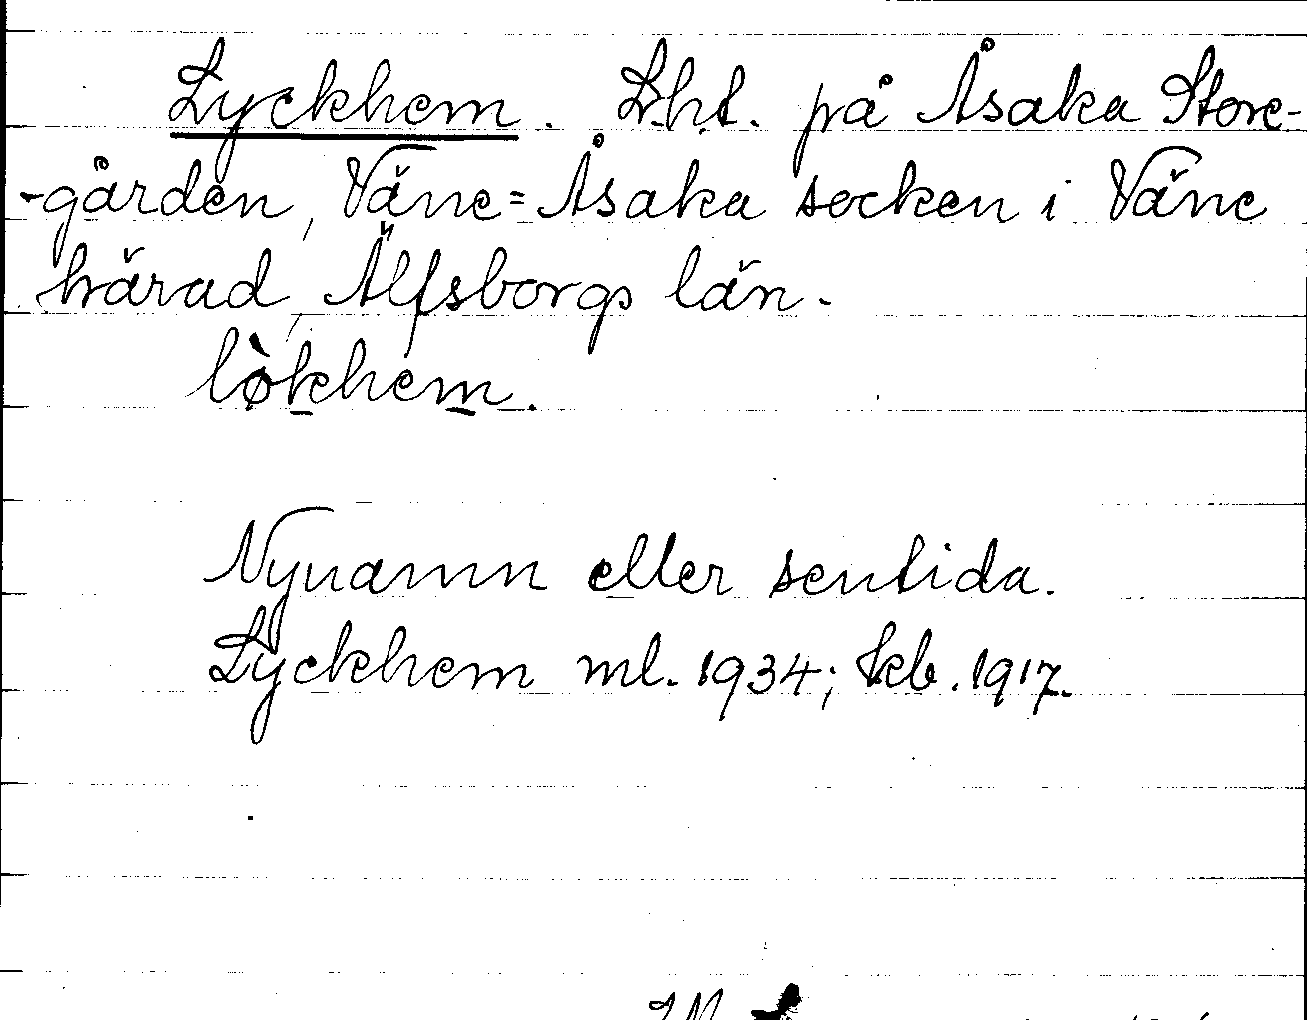 Lyckhem. L.h.t. på Åsaka Store-
-gården, Väne=Åsaka socken i Väne
härad, Älfsborgs län.
lø̀khem.
Nynamn eller sentida.
Lyckhem ml. 1934; kb. 1917.